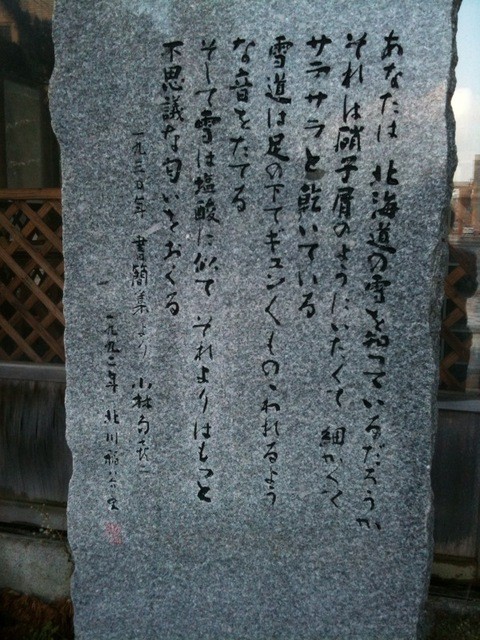 あなたは 北海道の雪を知っているだろうか
それは硝子屑のようにいたくて 細かくて
サラサラと乾いている
雪道は足の下でギュン〱ものゝわれるよう
な音をたてる
そして雪は塩酸に似て それよりはもっと
不思議な匂いをおくる
一九三〇年 書簡集より 小林多喜二